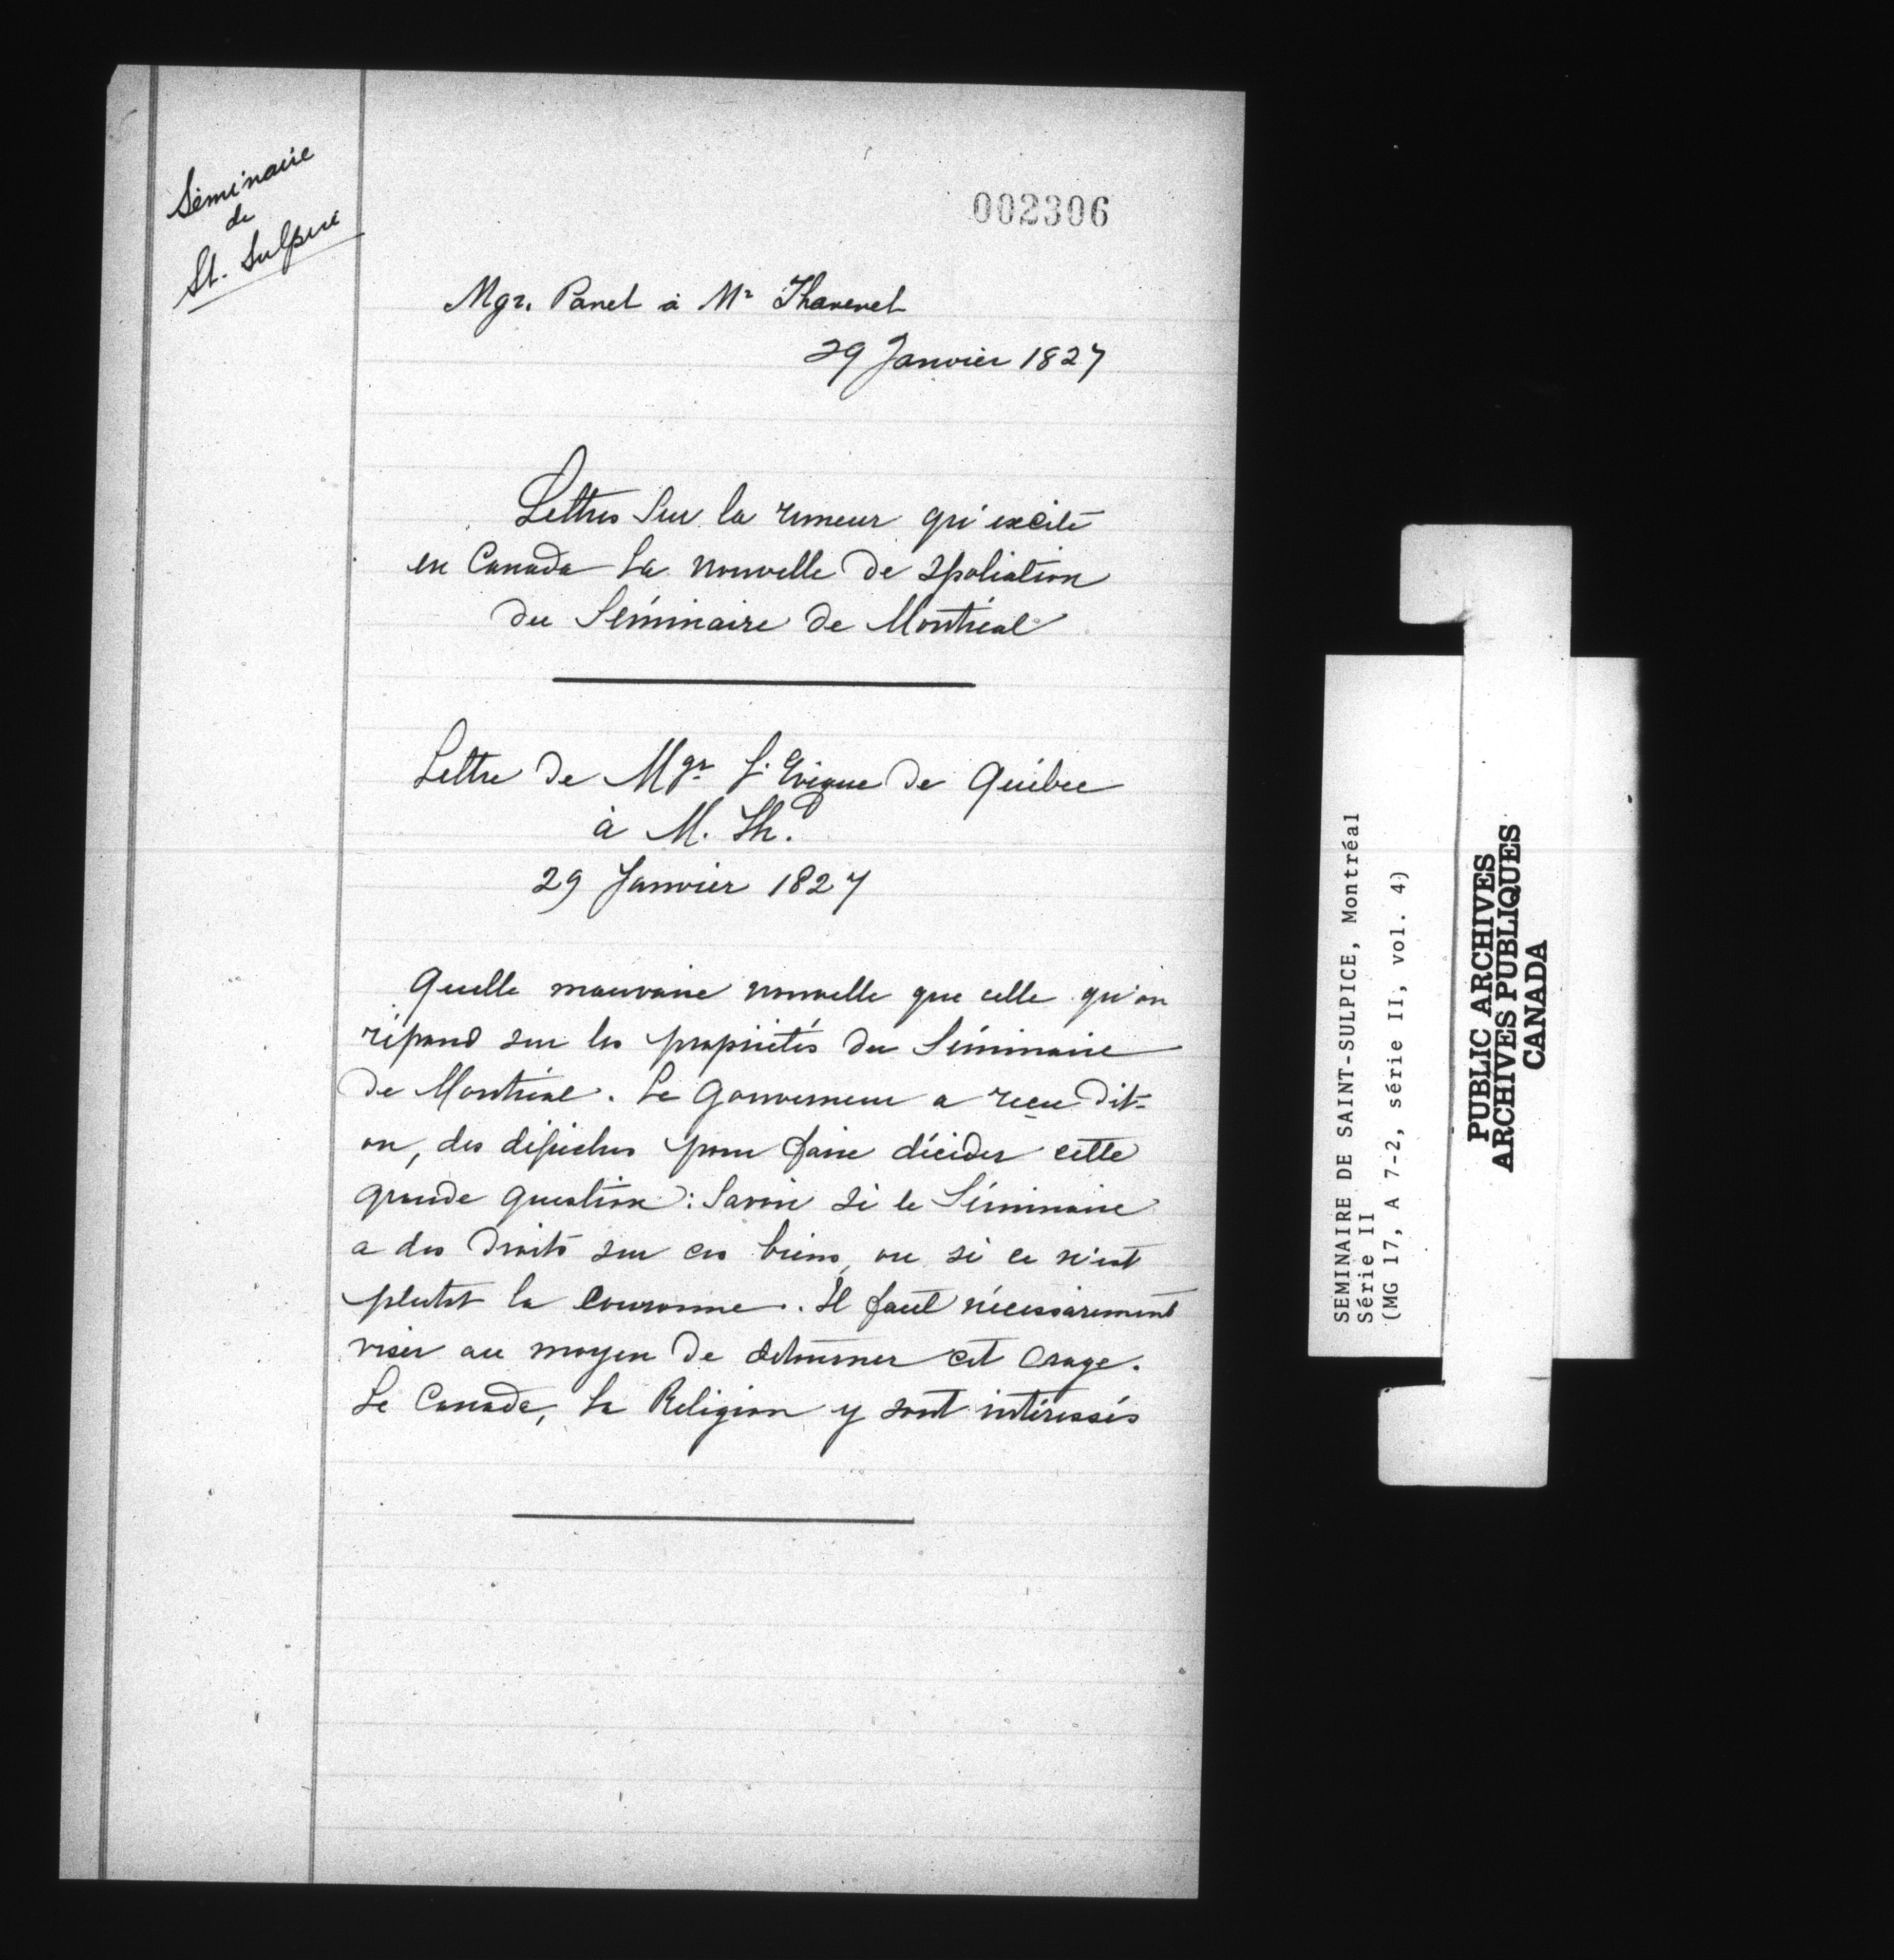 Séminaire
de
St. Sulpice
002306
Mgr. Panet à Mr Thavenet
29 Janvier 1827
Lettres sur la rumeur qu'excite
en Canada la nouvelle de spoliation
du Séminaire de Montréal
Lettre de Mgr L'Evêque de Québec
à M. Th.
29 Janvier 1827
Quelle mauvaise nouvelle que celle qu'on
répand sur les propriétés du Séminaire
de Montréal. Le Gouverneur a reçu dit-
on, des dépêches pour faire décider cette
grande question: Savoir si le Séminaire
a des droits sur ces biens, ou si ce n'est
plutot la Couronne. Il faut nécessairement
viser au moyen de detourner cet orage.
Le Canada, la Religion y sont intéressés
SEMINAIRE DE SAINT-SULPICE, Montréal
Série II
(MG 17, A 7-2, série II, vol. 4)
PUBLIC ARCHIVES
ARCHIVES PUBLIQUES
CANADA